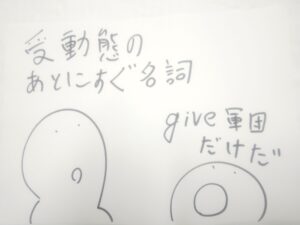 受動態の
あとにすぐ名詞
give軍団
だけだ